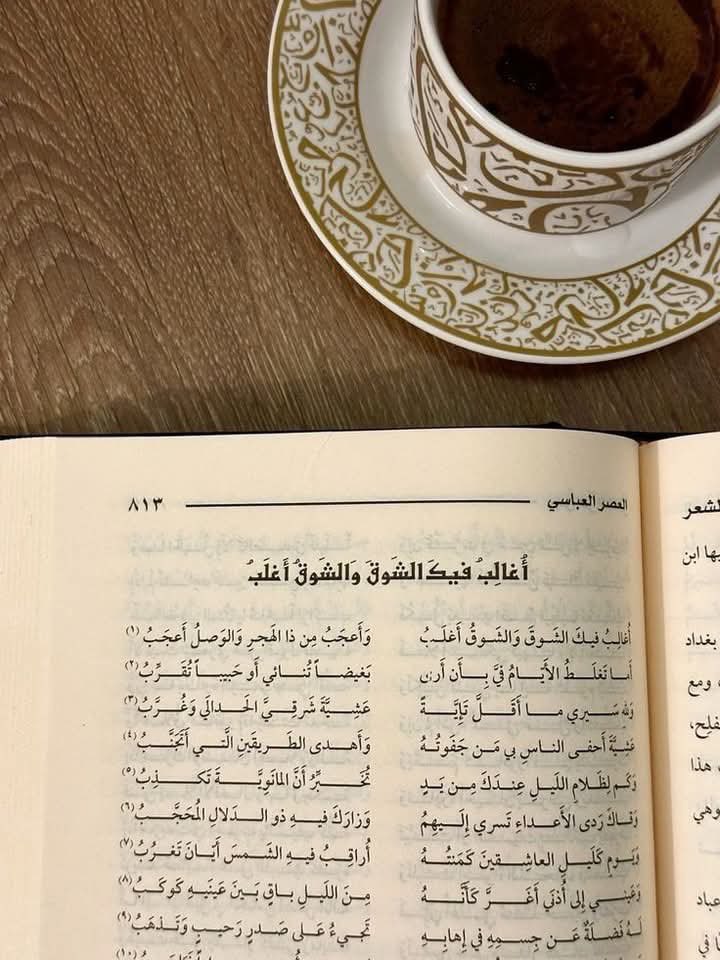 العصر العباسي ٨١٣
أُغالِبُ فيكَ الشَوقَ وَالشَوقُ أَغلَبُ
أُغالِبُ فيكَ الشَوقَ وَالشَوقُ أَغلَبُ وَأَعجَبُ مِن ذا الهَجرِ وَالوَصلُ أَعجَبُ (١)
أَما تَغلَطُ الأَيّامُ فيَّ بِأَن أَرى بَغيضاً تُنائي أَو حَبيباً تُقَرِّبُ (٢)
وَلِلَّهِ سَيري ما أَقَلَّ تَإِيَّةً عَشِيَّةَ شَرقِيَّ الحَدالَي وَغُرَّبُ (٣)
عَشِيَّةَ أَحفى الناسِ بي مَن جَفَوتُهُ وَأَهدى الطَريقَينِ الَّتي أَتَجَنَّبُ (٤)
وَكَم لِظَلامِ اللَيلِ عِندَكَ مِن يَدٍ تُخَبِّرُ أَنَّ المانَوِيَّةَ تَكذِبُ (٥)
وَقاكَ رَدى الأَعداءِ تَسري إِلَيهِمُ وَزارَكَ فيهِ ذو الدَلالِ المُحَجَّبُ (٦)
وَيَومٍ كَلَيلِ العاشِقينَ كَمَنتُهُ أُراقِبُ فيهِ الشَمسَ أَيّانَ تَغرُبُ (٧)
وَعَيني إِلى أُذنَي أَغَرَّ كَأَنَّهُ مِنَ اللَيلِ باقٍ بَينَ عَينَيهِ كَوكَبُ (٨)
لَهُ فَضلَةٌ عَن جِسمِهِ في إِهابِهِ تَجيءُ عَلى صَدرٍ رَحيبٍ وَتَذهَبُ (٩)
(١٠)
يها ابن
بغداد
، ومع
هذا
وهي
عباد